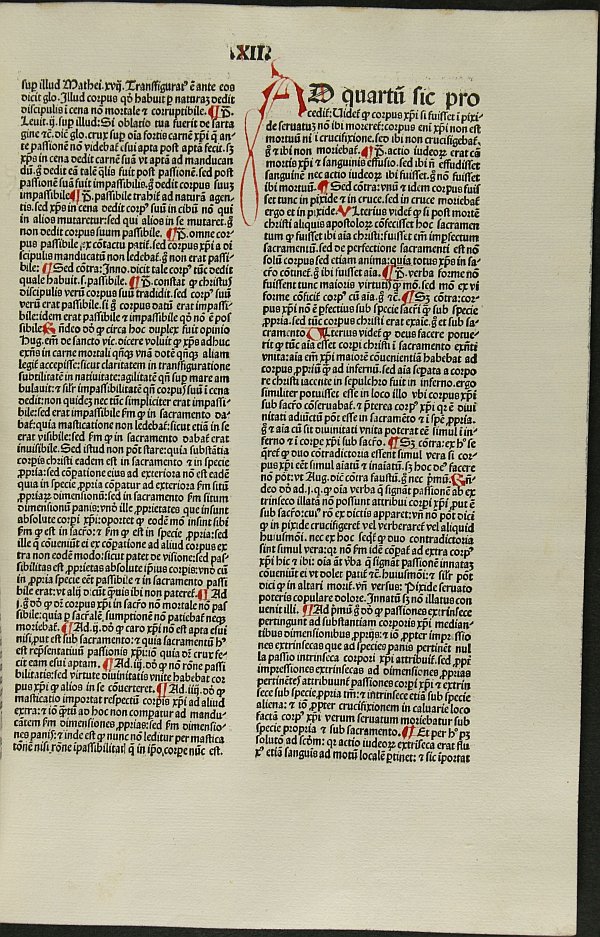 .XII.
sup illud Mathei. xvij. Transfigurat᷒ ē ante eos
dicit glo. Illud corpus qđ habuit ꝑ naturaȝ dedit
discipulis ī cena nō mortale ⁊ corruptibile. ¶ P.
Leuit. ij. sup illud: Si oblatio tua fuerit de sarta
gine ⁊c̄. dic̄ glo. crux sup oīa fortis carnē xp̄i q̄ an-
te passionē nō videbat᷒ esui apta post apta fecit. sȝ
xp̄s in cena dedit carnē suā vt aptā ad manducan
dū. ḡ dedit eā talē q̄lis fuit post passionē. sed post
passionē suā fuit impassibilis. ḡ dedit corpus suuȝ
impassibile ¶ P. passibile trahit᷒ ad naturā agen-
tis. sed xp̄s in cena dedit corp᷒ suū in cibū nō qui
in alios mutaretur: sed qui alios in se mutaret. ḡ
non dedit corpus suum passibile. ¶ P. omne cor-
pus passibile, ex cōtactu patit᷒. sed corpus xp̄i a di
scipulis manducatū non ledebat᷒. ḡ non erat passi-
bile: ¶ Sed cōtra: Inno. dicit tale corp᷒ tūc dedit
quale habuit. s. passibile. ¶ P. constat ꝙ christus
discipulis verū corpus suū tradidit. sed corp᷒ suū
verū erat passibile. si ḡ corpus datū erat impassi-
bile: idem erat passibile ⁊ impassibile qđ nō ē pos
sibile Rn̄deo dō ꝙ circa hoc duplex fuit opinio
Hug. em̄ de sancto vic. dicere voluit ꝙ xp̄s adhuc
exn̄s in carne mortali qn̄qȝ vnā dotē qn̄qȝ aliam
legit᷒ accepisse: sicut claritatem in transfiguratione
subtilitatē in natiuitate: agilitatē qn̄ sup mare am
bulauit: ⁊ sił’r impassibilitatē qn̄ corp᷒ suū ī cena
dedit: non quideȝ nec tūc simpliciter erat impassi-
bile: sed erat impassibile ẜm ꝙ in sacramento da-
bat᷒: quia masticatione non ledebat᷒: sicut etiā in se
erat visibile: sed ẜm ꝙ in sacramento dabat᷒ erat
inuisibile. Sed istud non pōt stare: quia substātia
corpis christi eadem est in sacramento ⁊ in specie
ꝓpria: sed cōpatione eius ad exteriora nō est eadē
quia in specie ꝓpria cōpatur ad exteriora ẜm sitū
ꝓpriaꝝ dimensionū: sed in sacramento ẜm situm
dimensionū panis: vnō ille ꝓprietates que insunt
absolute corpi xp̄i: oportet ꝙ eodē mō insint sibi
ẜm ꝙ est in sacro: ⁊ ẜm ꝙ est in specie ꝓpria: sed
ille q̄ cōueniūt ei ex cōpatione ad aliud corpus ex
tra non eodē modo: sicut patet de visione: sed pas-
sibilitas est ꝓprietas absolute ipsius corpis: vnō cū
in ꝓpria specie eēt passibile ⁊ in sacramento passi
bile erat: vt alij dicūt q̄uis ibi non pateret᷒. ¶ Ad
j. ḡ dō ꝙ dr̄ corpus xp̄i in sacro nō mortale nō pas
sibile: quia ꝑ sacr̄alē sumptionē nō patiebat᷒ neqȝ
moriebat᷒. ¶ Ad. ij. dō ꝙ caro xp̄i nō est apta esui
nisi, put est sub sacramento: ⁊ quia sacramentū h᷒
est repn̄tatiuū passionis xp̄i: iō quia dr̄ crux fe-
cit eam esui aptam. ¶ Ad. iij. dō ꝙ nō rōne passi
bilitatis: sed virtute diuinitatis vnite habebat cor
pus xp̄i ꝙ alios in se cōuerteret. ¶ Ad. iiij. dō ꝙ
masticatio importat respectū corpis xp̄i ad aliud
extra: ⁊ iō q̄tū ad hoc non compatur ad mandu-
cātem ẜm dimensiones ꝓprias: sed ẜm dimensio-
nes panis: ⁊ inde est ꝙ nunc nō leditur per mastica
tōnē nisi rōne īpassibilitat᷒ q̄ in ipo corpe nūc est.
AD quartū sic pro
cedit: Videt᷒ ꝙ corpus xp̄i si fuisset ī pixi-
de seruatuȝ nō ibi moreret᷒: corpus eni xp̄i non est
mortuū ni᷒ ī crucifixione. sed ibi non crucifigebat᷒.
ḡ ⁊ ibi non moriebat᷒. ¶ P. actio iudeoꝝ erat cā
mortis xp̄i ⁊ sanguinis effusio. sed ibi n̄ effudisset
sanguinē nec actio iudeoꝝ ibi fuisset. ḡ nō fuisset
ibi mortuū. ¶ Sed cōtra: vnū ⁊ idem corpus fuis
set tunc in pixide ⁊ in cruce. sed in cruce moriebat᷒
ergo et in pixide. Vlterius videt᷒ ꝙ si post mortē
christi aliquis apostoloꝝ cōfecisset hoc sacramen
tum ꝙ fuisset ibi aīa christi: fuisset em̄ impfectum
sacramentū. sed de perfectione sacramenti est nō
solū corpus sed etiam anima: quia totus xp̄s in sa-
cro cōtinet᷒. ḡ ibi fuisset aīa. ¶ P. verba forme nō
fuissent tunc maioris virtutis ꝙ mō. sed mō ex vi
forme cōficit᷒ corp᷒ cū aīa. ḡ ⁊c̄. ¶ Sȝ cōtra: cor-
pus xp̄i nō ē ꝑfectius sub specie sacri ꝙ sub specie
ꝓpria. sed tūc corpus christi erat exaīe. ḡ et sub sa-
cramento Vlterius videt᷒ ꝙ deus facere potue-
rit ꝙ tūc aīa esset corpi christi ī sacramento exn̄ti
vnita: aīa em̄ xp̄i maiorē cōuenientiā habebat ad
corpus ꝓpriū ꝙ ad infernū. sed aīa sepata a corpo
re christi iacente in sepulchro fuit in inferno. ergo
similiter potuisset esse in loco illo vbi corpus xp̄i
sub sacro cōseruabat᷒. ⁊ p̄terea corp᷒ xp̄i qȝ ē diui
nitati adiūctū pōt esse in sacramēto ⁊ ī spē ꝓpria.
ḡ ⁊ aīa cū sit diuinitati vnita poterat eē simul ī in-
ferno ⁊ ī corpe xp̄i sub sacro. ¶ Sȝ cōtra: ex h᷒ se
q̄ret᷒ ꝙ duo cōtradictoria essent simul vera si cor-
pus xp̄i eēt simul aīatū ⁊ inaīatū. sȝ hoc de᷒ facere
nō pōt: vt Aug. dic̄ cōtra faustū. ḡ nec p̄mū. Rn̄-
deo dō ad. j. q. ꝙ oīa verba q̄ signāt passionē ab ex
trinseco illatā nō possunt attribui corpi xp̄i, put ē
sub sacro: cui᷒ rō ex dictis apparet: vn̄ nō pōt dici
ꝙ in pixide crucifigeret᷒ vel verberaret᷒ vel aliquid
huiusmōi. nec ex hoc seq̄t᷒ ꝙ duo contradictoria
sint simul vera: qȝ nō ẜm idē cōpat᷒ ad extra corp᷒
xp̄i hic ⁊ ibi: oīa aūt v̄ba q̄ signāt passionē innatā
cōueniūt ei vt dolet patit᷒ ⁊c̄. huiusmōi: ⁊ sił’r pōt
dici ꝙ in altari morit᷒. vn̄ versus: Pixide seruato
poteris copulare dolorē. Innatū sȝ nō illatus con
uenit illi. ¶ Ad p̄mū ḡ dō ꝙ passiones extrinsece
pertingunt ad substantiam corporis xp̄i median-
tibus dimensionibus ꝓprijs: ⁊ iō ꝓpter impressio
nes extrinsecas que ad species panis pertinēt nul
la passio intrinseca corpori xp̄i attribuit᷒. sed ꝓpt᷒
impressiones extrinsecas ad dimensiones ꝓprias
pertinētes attribuunt᷒ passiones corpi xp̄i ⁊ extrin
sece sub specie ꝓpria tm̄: ⁊ intrinsece etiā sub specie
aliena: ⁊ iō ꝓpter crucifixionem in caluarie loco
factā corp᷒ xp̄i verum seruatum moriebatur sub
specie propria ⁊ sub sacramento. ¶ Et per h᷒ pȝ
soluto ad scđm: qȝ actio iudeoꝝ extriseca erat flu
x᷒ etiā sanguis ad motū localē ꝑtinet: ⁊ sic īportat